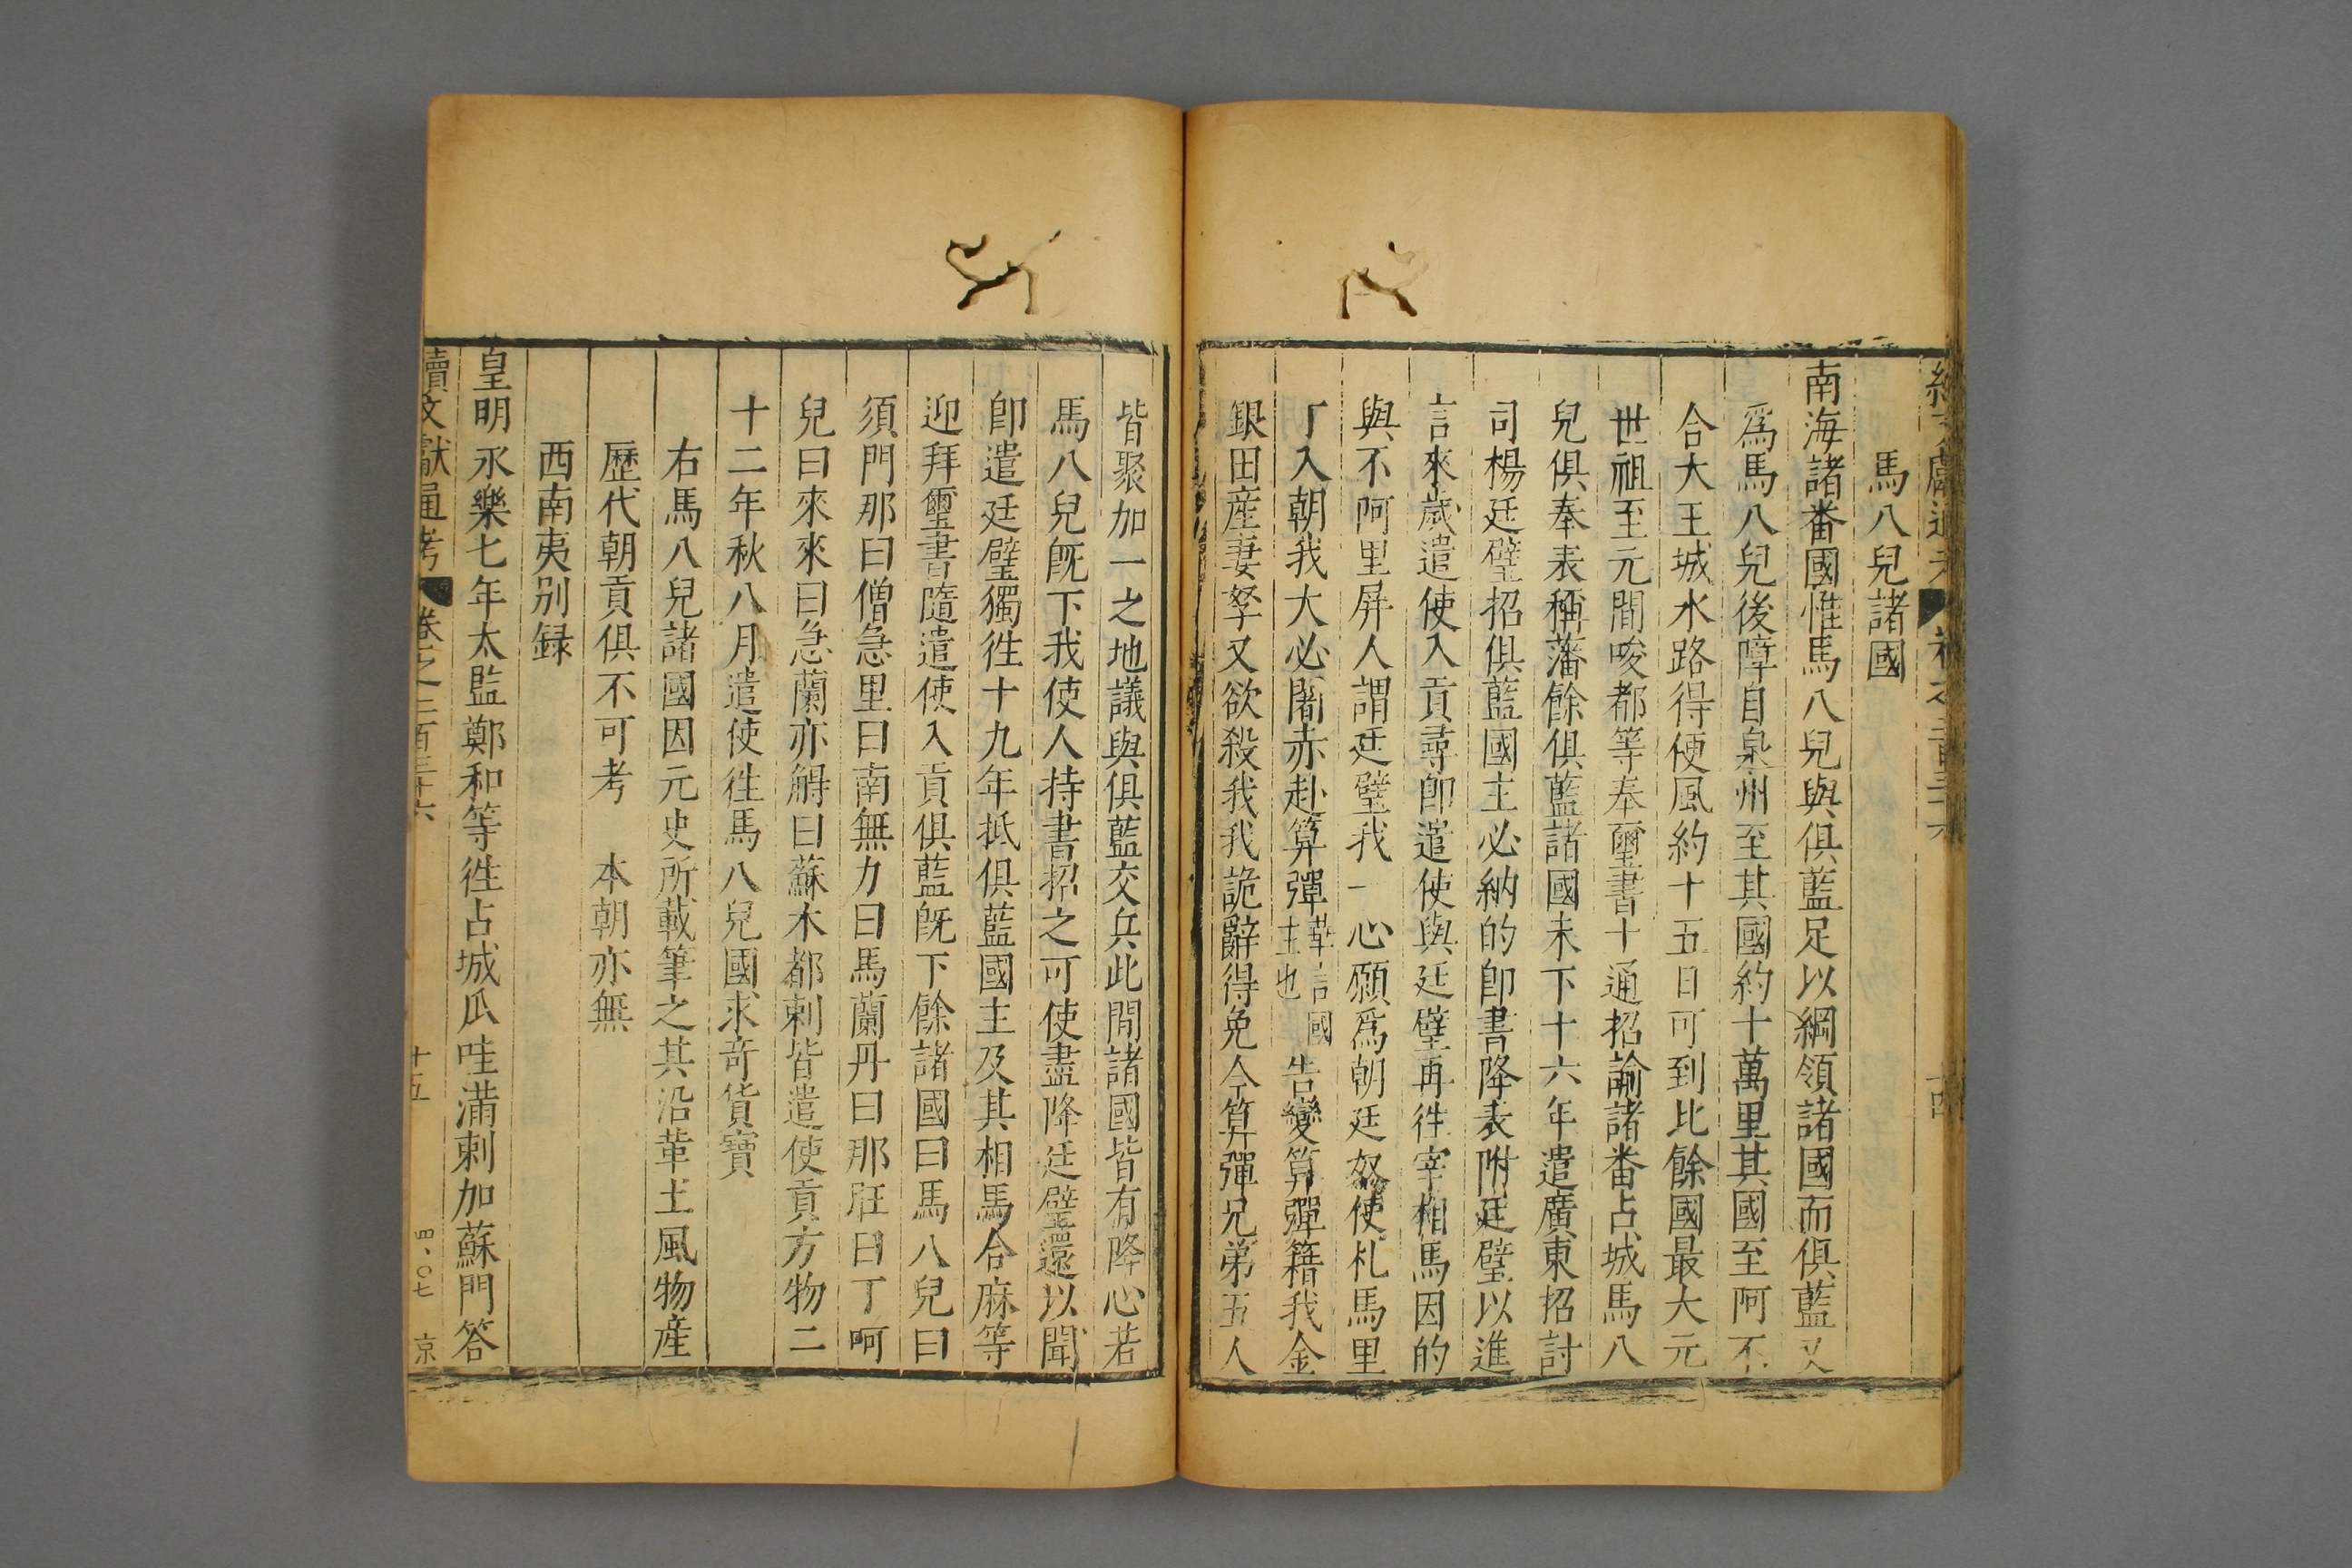 馬八兒諸國
南海諸番國惟馬八兒與俱藍足以綱領諸國而俱藍又
爲馬八兒後障自泉州至其國約十萬里其國至阿不
合大王城水路得便風約十五日可到比餘國最大元
世祖至元間唆都等奉璽書十通招諭諸番占城馬八
兒俱奉表稱藩餘俱藍諸國未下十六年遣廣東招討
司楊廷璧招俱藍國主必納的卽書降表附廷璧以進
言來歲遣使入貢尋卽遣使與廷璧再徃宰相馬因的
與不阿里屏人謂廷璧我一心願爲朝廷奴使札馬里
丁入朝我大必闍赤赴算彈華言國主也告變算彈籍我金
銀田産妻孥又欲殺我我詭辭得免今算彈兄弟五人
皆聚加一之地議與俱藍交兵此間諸國皆有降心若
馬八兒旣下我使人持書招之可使盡降廷璧還以聞
卽遣廷璧獨徃十九年抵俱藍國主及其相馬合麻等
迎拜璽書隨遣使入貢俱藍旣下餘諸國曰馬八兒曰
須門那曰僧急里曰南無力曰馬蘭丹曰那旺曰丁呵
兒曰來來曰急蘭亦䚡曰蘇木都剌皆遣使貢方物二
十二年秋八月遣使徃馬八兒國求奇貨寶
右馬八兒諸國因元史所載筆之其沿革土風物産
歷代朝貢俱不可考　本朝亦無
西南夷别録
皇明永樂七年太監鄭和等徃占城瓜哇滿剌加蘇門答
續文獻通考　卷之二百三十六　十五　四〇七　京